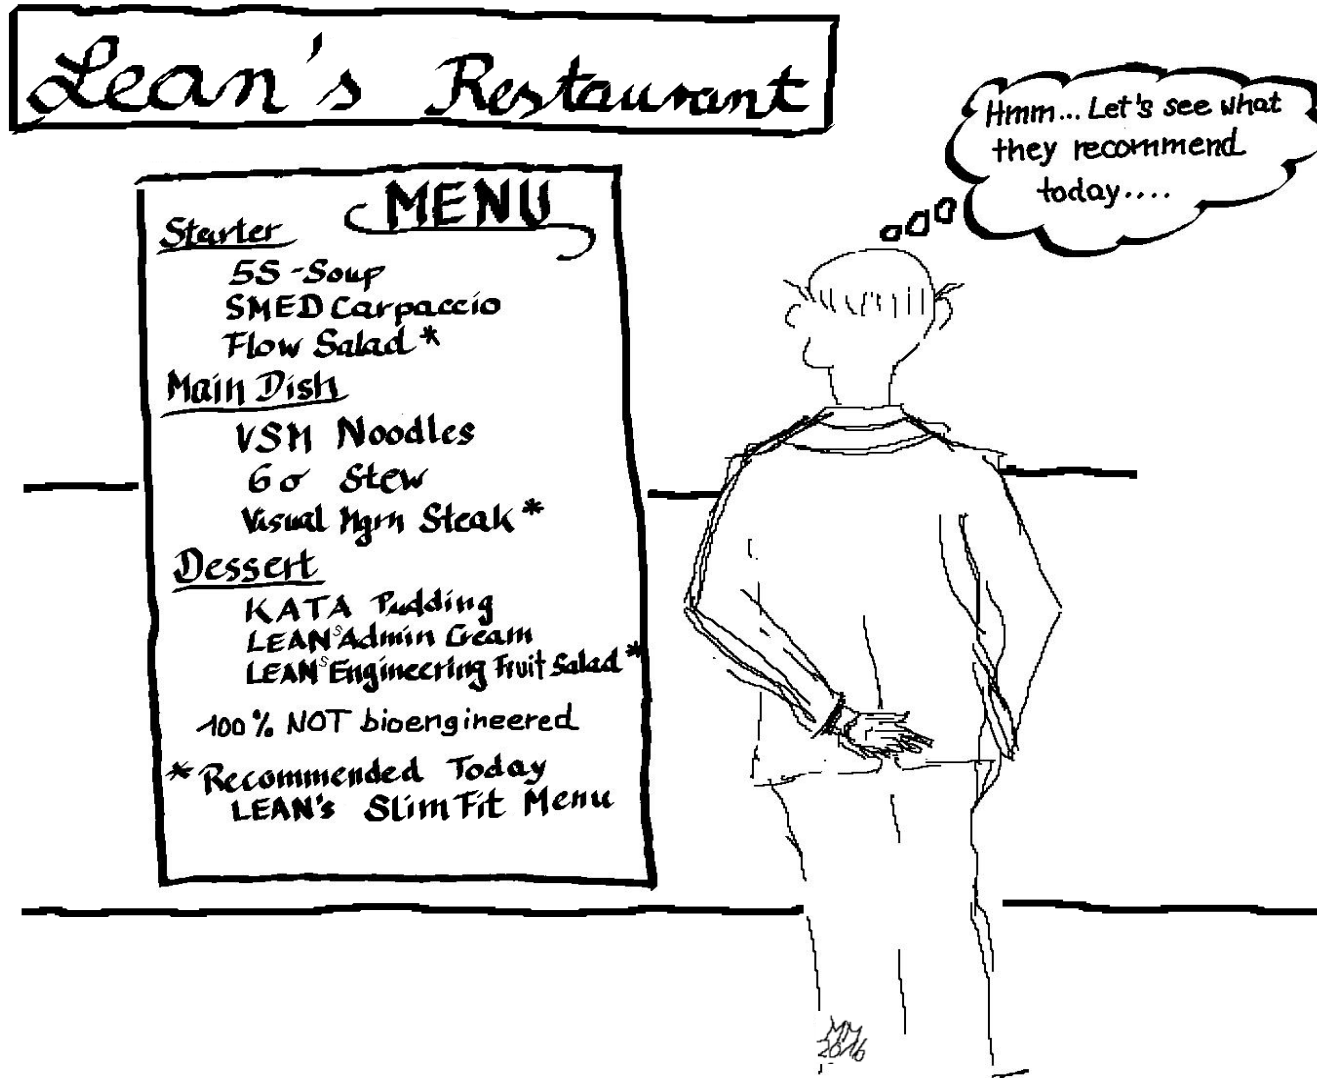 Lean's Restaurant
Hmm... Let's see what
they recommend
today....
MENU
Starter
5S-Soup
SMED Carpaccio
Flow Salad*
Main Dish
VSM Noodles
6σ Stew
Visual Mgm Steak*
Dessert
KATA Pudding
LEANS Admin Cream
LEANS Engineering Fruit Salad*
100% NOT bioengineered
*Recommended Today
LEAN's SlimFit Menu
MM
2016